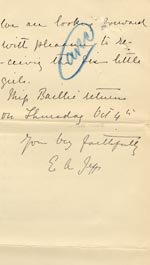 We are looking forward
with pleasure to re-
ceiving the little
girls.
Miss Baillie returns
on Thursday Oct 4th
Yours very faithfully
E A